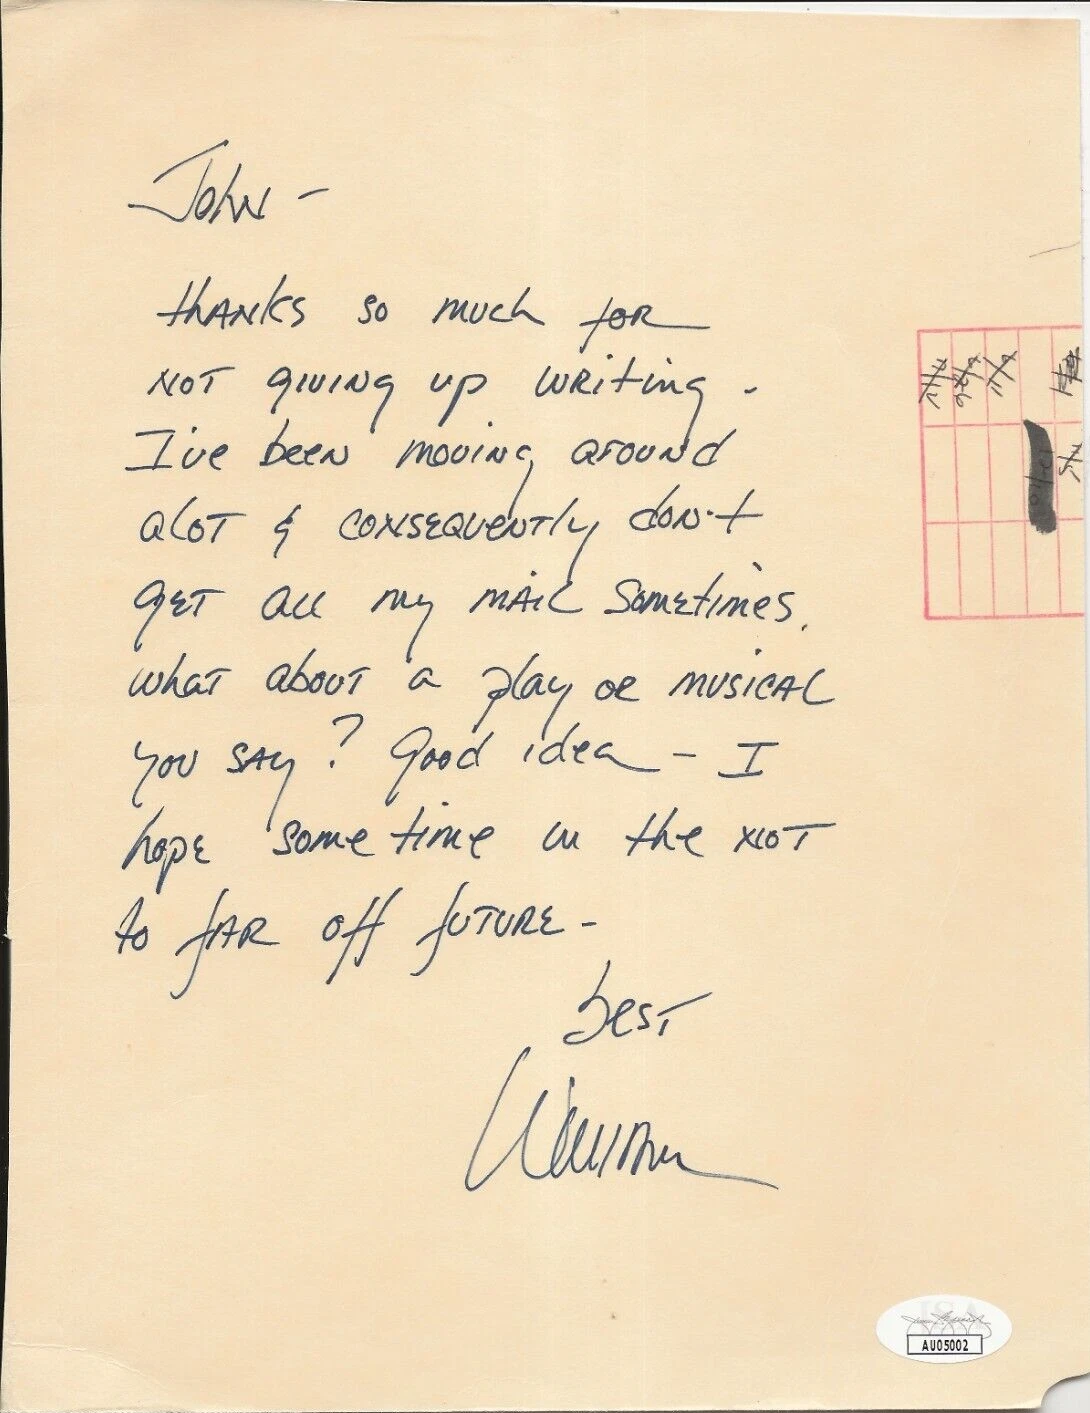 John -
thanks so much for
not giving up writing.
I've been moving around
alot & consequently don't
get all my mail sometimes.
what about a play or musical
you say? Good idea - I
hope some time in the not
to far off future -
best
William
AU05002